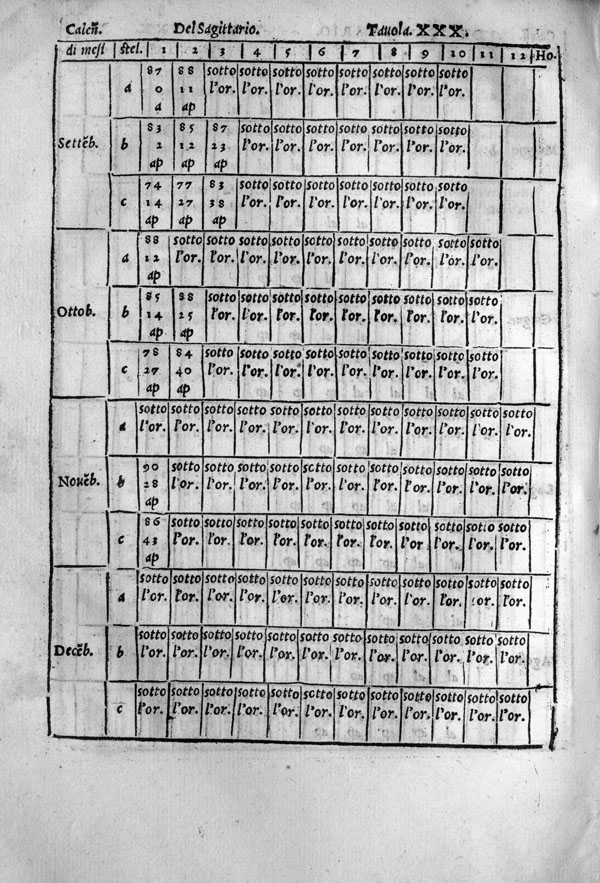 Caleñ. Del Sagittario. Tavola. XXX.
di mesi stel. 1 2 3 4 5 6 7 8 9 10 11 12 Ho.
87 88 sotto sotto sotto sotto sotto sotto sotto sotto
a 0 11 l'or. l'or. l'or. l'or. l'or. l'or. l'or. l'or.
a ap
83 85 87 sotto sotto sotto sotto sotto sotto sotto
Settẽb. b 2 12 23 l'or. l'or. l'or. l'or. l'or. l'or. l'or.
ap ap ap
74 77 83 sotto sotto sotto sotto sotto sotto sotto
c 14 27 38 l'or. l'or. l'or. l'or. l'or. l'or. l'or.
ap ap ap
88 sotto sotto sotto sotto sotto sotto sotto sotto sotto sotto
a 12 l'or. l'or. l'or. l'or. l'or. l'or. l'or. l'or. l'or. l'or.
ap
85 88 sotto sotto sotto sotto sotto sotto sotto sotto sotto
Ottob. b 14 25 l'or. l'or. l'or. l'or. l'or. l'or. l'or. l'or. l'or.
ap ap
78 84 sotto sotto sotto sotto sotto sotto sotto sotto sotto
c 27 40 l'or. l'or. l'or. l'or. l'or. l'or. l'or. l'or. l'or.
ap ap
sotto sotto sotto sotto sotto sotto sotto sotto sotto sotto sotto sotto
a l'or. l'or. l'or. l'or. l'or. l'or. l'or. l'or. l'or. l'or. l'or. l'or.
90 sotto sotto sotto sotto sotto sotto sotto sotto sotto sotto sotto
Novẽb. b 28 l'or. l'or. l'or. l'or. l'or. l'or. l'or. l'or. l'or. l'or. l'or.
ap
86 sotto sotto sotto sotto sotto sotto sotto sotto sotto sotto sotto
c 43 l'or. l'or. l'or. l'or. l'or. l'or. l'or. l'or l'or. l'or. l'or.
ap
sotto sotto sotto sotto sotto sotto sotto sotto sotto sotto sotto sotto
a l'or. l'or. l'or. l'or. l'or. l'or. l'or. l'or. l'or. l'or. l'or. l'or.
sotto sotto sotto sotto sotto sotto sotto sotto sotto sotto sotto sotto
Decẽb. b l'or. l'or. l'or. l'or. l'or. l'or. l'or. l'or. l'or. l'or. l'or. l'or.
sotto sotto sotto sotto sotto sotto sotto sotto sotto sotto sotto sotto
c l'or. l'or. l'or. l'or. l'or. l'or. l'or. l'or. l'or. l'or. l'or. l'or.